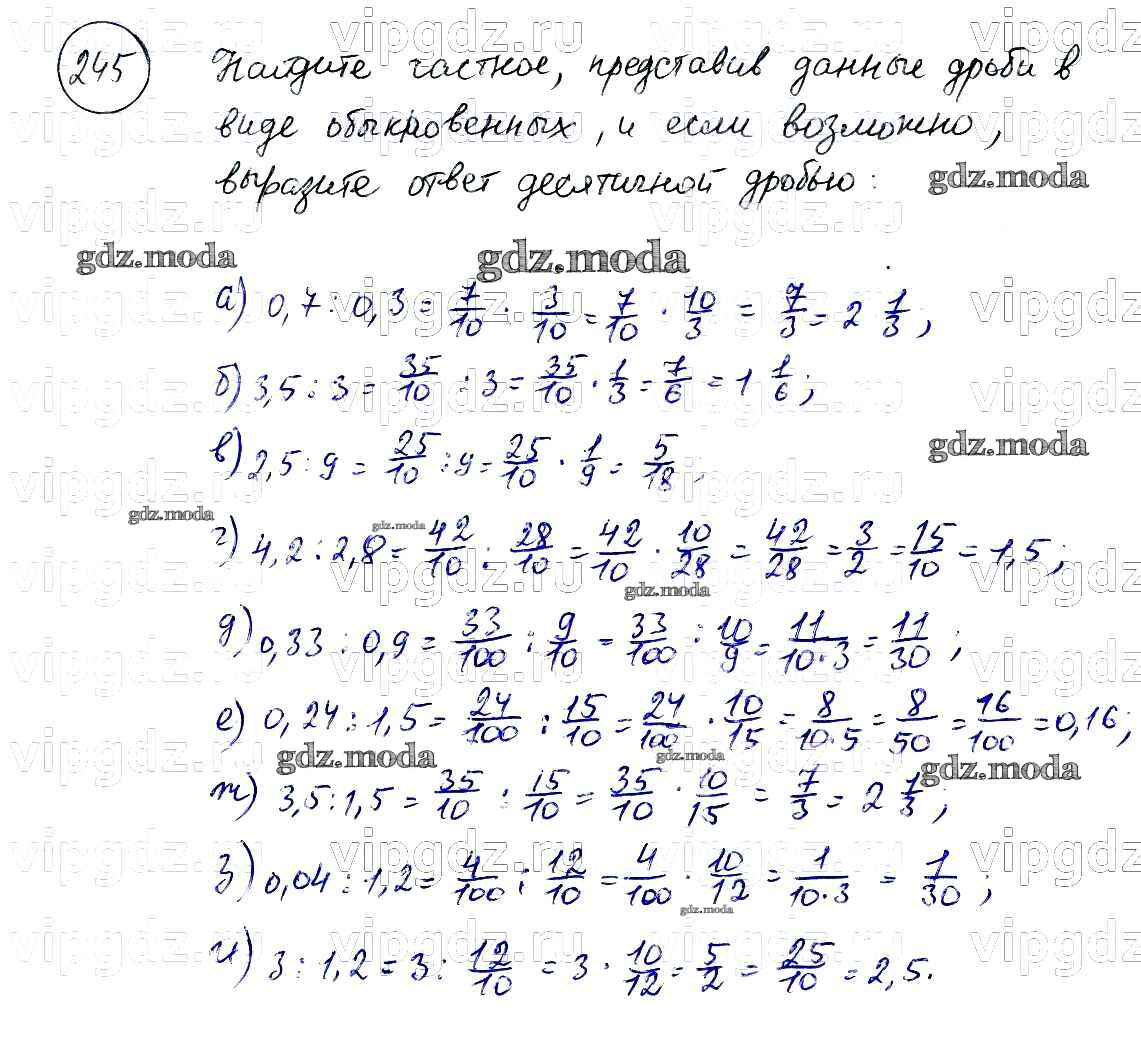 245 Найдите частное, представив данные дроби в
виде обыкновенных, и если возможно,
выразите ответ десятичной дробью:
gdz.moda
gdz.moda gdz.moda
а) 0,7 : 0,3 = 7/10 : 3/10 = 7/10 · 10/3 = 7/3 = 2 1/3;
б) 3,5 : 3 = 35/10 : 3 = 35/10 · 1/3 = 7/6 = 1 1/6;
в) 2,5 : 9 = 25/10 : 9 = 25/10 · 1/9 = 5/18.
gdz.moda
gdz.moda gdz.moda
г) 4,2 : 2,8 = 42/10 : 28/10 = 42/10 · 10/28 = 42/28 = 3/2 = 15/10 = 1,5;
gdz.moda
д) 0,33 : 0,9 = 33/100 : 9/10 = 33/100 : 10/9 = 11/10·3 = 11/30;
е) 0,24 : 1,5 = 24/100 : 15/10 = 24/100 · 10/15 = 8/10·5 = 8/50 = 16/100 = 0,16;
gdz.moda gdz.moda gdz.moda
ж) 3,5 : 1,5 = 35/10 : 15/10 = 35/10 · 10/15 = 7/3 = 2 1/3;
з) 0,04 : 1,2 = 4/100 : 12/10 = 4/100 · 10/12 = 1/10·3 = 1/30;
gdz.moda
и) 3 : 1,2 = 3 : 12/10 = 3 · 10/12 = 5/2 = 25/10 = 2,5.
vipgdz.ru